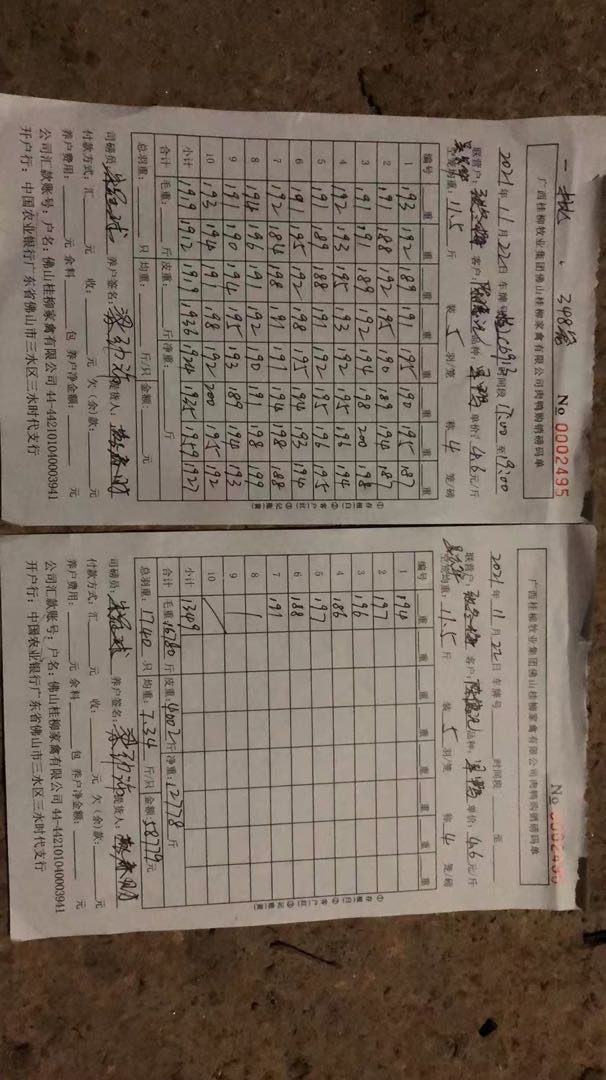 一车边、348笼
广西桂柳牧业集团佛山桂柳家禽有限公司肉鸭购销磅码单
№ 0002495
2021年11月22日 车牌 时间段 17:00 至 19:00
联营户: 客户: 品种: 单价: 4.6 元/斤
空笼均重: 11.5 斤 装 5 羽/笼 称 4 笼/磅
编号 重 重 重 重 重 重 重 重
1 193 192 189 191 195 190 195 187
2 191 188 192 195 190 189 194 187
3 191 191 189 192 194 198 200 198
4 192 193 195 193 192 195 196 194
5 191 189 188 191 192 195 196 195
6 191 195 192 198 195 194 193 194
7 192 184 198 191 191 194 198 188
8 194 196 191 192 190 191 198 199
9 191 190 194 195 193 189 194 193
10 193 194 191 198 192 200 195 192
小计 1919 1912 1919 1936 1924 1925 1959 1927
合计 毛重: 斤 皮重: 斤 净重: 斤
总羽重: 只 均重: 斤/只 金额: 元
司磅员: 养户签名: 提货人:
付款方式: 汇 元 收: 元 欠(余)款: 元
养户费用: 元 余料 包 养户净金额: 元
公司汇款账号: 户名: 佛山桂柳家禽有限公司 44-442101040003941
开户行: 中国农业银行广东省佛山市三水区三水时代支行
①存根(白) ②客户(红) ③记账(黄)
广西桂柳牧业集团佛山桂柳家禽有限公司肉鸭购销磅码单
№ 0002496
2021年11月22日 车牌号 时间段 至
联营户: 客户: 品种: 单价: 4.6 元/斤
空笼均重: 11.5 斤 装 5 羽/笼 称 4 笼/磅
编号 重 重 重 重 重 重 重 重
1 194
2 197
3 196
4 186
5 197
6 188
7 191
8
9
10
1349
合计 毛重: 16780 斤 皮重: 4002 斤 净重: 12778 斤
总羽重: 1740 只 均重: 7.34 斤/只 金额: 58779 元
司磅员: 养户签名: 提货人:
付款方式: 汇 元 收: 元 欠(余)款: 元
养户费用: 元 余料 包 养户净金额: 元
公司汇款账号: 户名: 佛山桂柳家禽有限公司 44-442101040003941
开户行: 中国农业银行广东省佛山市三水区三水时代支行
①存根(白) ②客户(红) ③记账(黄)